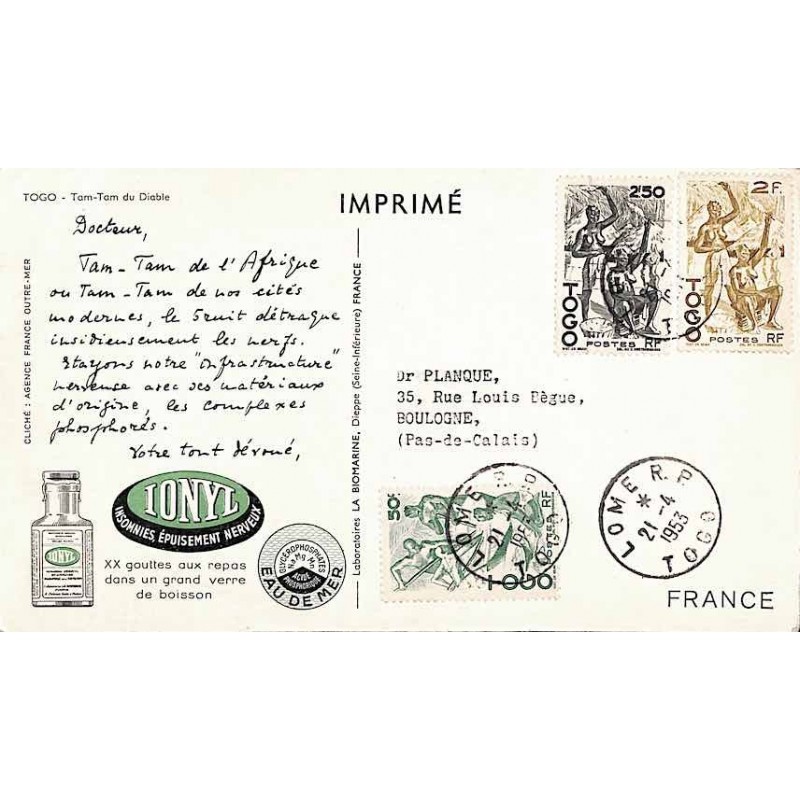 TOGO - Tam-Tam du Diable
IMPRIMÉ
Docteur,
Tam-Tam de l'Afrique
ou Tam-Tam de nos cités
modernes, le bruit détraque
insidieusement les nerfs.
Etayons notre "infrastructure"
nerveuse avec ses matériaux
d'origine, les complexes
phosphorés.
Votre tout dévoué,
CLICHÉ : AGENCE FRANCE OUTRE-MER
IONYL
IONYL
INSOMNIES, ÉPUISEMENT NERVEUX
XX gouttes aux repas
dans un grand verre
de boisson
GLYCÉROPHOSPHATES
Na Mg Mn
ACIDE
PHOSPHORIQUE
EAU DE MER
Laboratoires LA BIOMARINE, Dieppe (Seine-Inférieure) FRANCE
2F50
TOGO
POSTES RF
2F.
TOGO
POSTES RF
Dr PLANQUE,
35, Rue Louis Bègue,
BOULOGNE,
(Pas-de-Calais)
50c
POSTES RF
TOGO
LOME R.P
21-4
1953
TOGO
LOME R.P
21-4
1953
TOGO
FRANCE